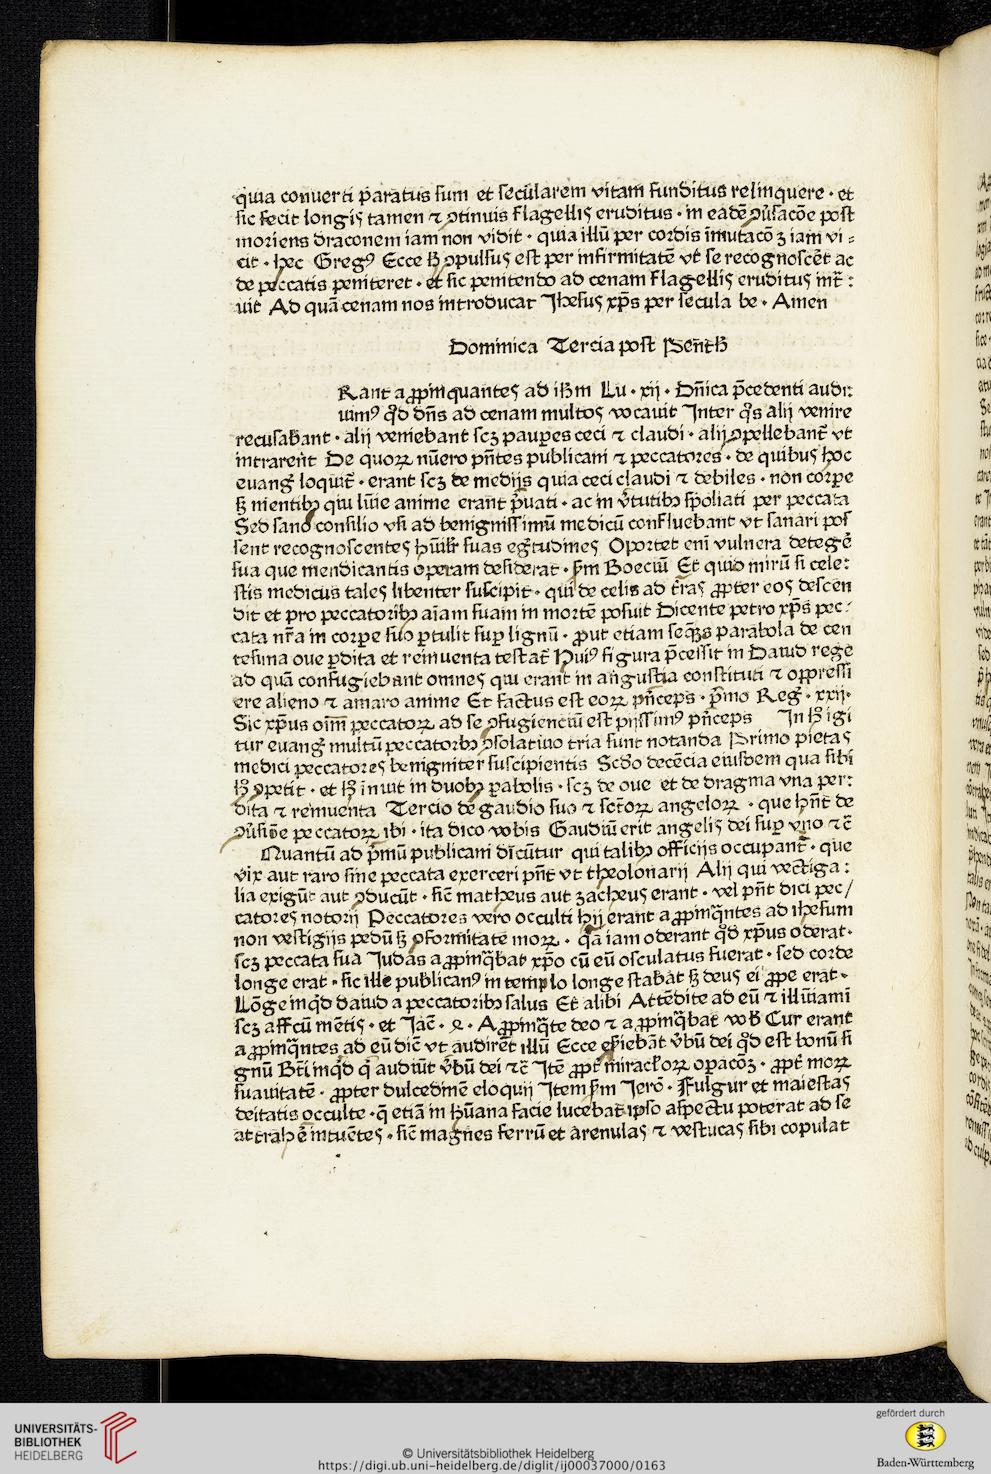 quia conuerti paratus sum et secularem vitam funditus relinquere · et
sic fecit longis tamen ⁊ ꝯtinuis flagellis eruditus · in eadē ꝯuͥsacōe post
moriens draconem iam non vidit · quia illū per cordis īmutacōꝫ iam vi =
cit · hec Gregꝰ Ecce hͦ ꝯpulsus est per infirmitatē vt se recognoscēt ac
de peccatis peniteret · et sic penitendo ad cenam flagellis eruditus int̄ :
uit Ad quā cenam nos introducat Ihesus xp̄s per secula be · Amen
Dominica Tercia post Pent̄
Rant a ꝓpinquantes ad ih̄m Lu · xv · Dn̄ica p̄cedenti audi:
uimꝰ qd̄ dn̄s ad cenam multos vocauit Inter qͦs alij venire
recusabant · alij veniebant scꝫ pauꝑes ceci ⁊ claudi · alij ꝯpellebant᷑ vt
intrarent De quoꝝ nūero pn̄tes publicani ⁊ peccatores · de quibus hoc
euang̃ loquit᷑ · erant scꝫ de medijs quia ceci claudi ⁊ debiles · non corꝑe
sꝫ mentibꝫ qui luīe anime erant p̄uati · ac in v̓tutibꝫ spoliati per peccata
Sed sano consilio vsi ad benignissimū medicū confluebant vt sanari pos
sent recognoscentes hūilit̄ suas eg̓tudines Oportet enī vulnera detegē
sua que mendicantis operam desiderat · sm̄ Boeciū Et quid mirū si cele:
stis medicus tales libenter suscipit · qui de celis ad t̄ras ꝓpter eos descen
dit et pro peccatoribꝫ aīam suam in mortē posuit Dicente petro xp̄s pec/
cata nr̄a in corꝑe suo ꝑtulit suꝑ lignū · ꝓut etiam seq̄ns parabola de cen
tesima oue ꝑdita et reinuenta testat᷑ Huiꝰ figura p̄cessit in Dauid rege
ad quā confugiebant omnes qui erant in angustia constituti ⁊ oppressi
ere alieno ⁊ amaro anime Et factus est eoꝝ pn̄ceps · p̄mo Reg̃ · xxij·
Sic xp̄us oīm̄ peccatoꝝ ad se ꝯfugienciū est pijssimꝰ pn̄ceps In hͦ igi
tur euang̃ multū peccatoribꝫ ꝯsolatiuo tria sunt notanda Primo pietas
medici peccatores benigniter suscipientis Scd̄o decēcia eiusdem qua sibi
hͦ ꝯpetit · et hͦ inuit in duobꝫ ꝑabolis · scꝫ de oue et de dragma vna per:
dita ⁊ reinuenta Tercio de gaudio suo ⁊ sct̄oꝝ angeloꝝ · que hn̄t de
ꝯuͥsiōe peccatoꝝ ibi · ita dico vobis Gaudiū erit angelis dei suꝑ vno ⁊c̄
Quantū ad p̄mū publicani dicūtur qui talibꝫ officijs occupant᷑ · que
vix aut raro sine peccata exerceri pn̄t vt theolonarij Alij qui vectiga:
lia exigūt aut ꝯducūt · sic̄ matheus aut zacheus erant · vel pn̄t dici pec/
catores notorij Peccatores vero occulti hij erant a ꝓpinq̄ntes ad ihesum
non vestigijs pedū sꝫ ꝯformitate moꝝ · qͣa iam oderant qd̄ xp̄us oderat·
scꝫ peccata sua Iudas a ꝓpinq̄bat xp̄o cū eū osculatus fuerat · sed corde
longe erat · sic ille publicanꝰ in templo longe stabat sꝫ deus ei ꝓpe erat ·
Lōge inqͥd dauid a peccatoribꝫ salus Et alibi Attēdite ad eū ⁊ illūiamī
scꝫ affcū mētis · et Iac̄ · 4 · A ꝓpinq̄te deo ⁊ a ꝓpinq̄bat vob̄ Cur erant
a ꝓpinq̄ntes ad eū dic̄ vt audirēt illū Ecce esiebāt v̓bū dei qd̄ est bonū si
gnū Bt̄i inqͥd qͥ audiūt v̓bū dei ⁊c̄ Itē ꝓpt̄ miraculoꝝ oꝑacōꝫ · ꝓpt̄ moꝝ
suauitatē · ꝓpter dulcedinē eloquij Item sm̄ Ierō · Fulgur et maiestas
deitatis occulte · q̄ etiā in hūana facie lucebat ipso aspectu poterat ad se
attrahē intuētes · sic̄ magnes ferrū et arenulas ⁊ vestucas sibi copulat
UNIVERSITÄTS-
BIBLIOTHEK
HEIDELBERG
© Universitätsbibliothek Heidelberg
https://digi.ub.uni-heidelberg.de/diglit/ij00037000/0163
gefördert durch
Baden-Württemberg